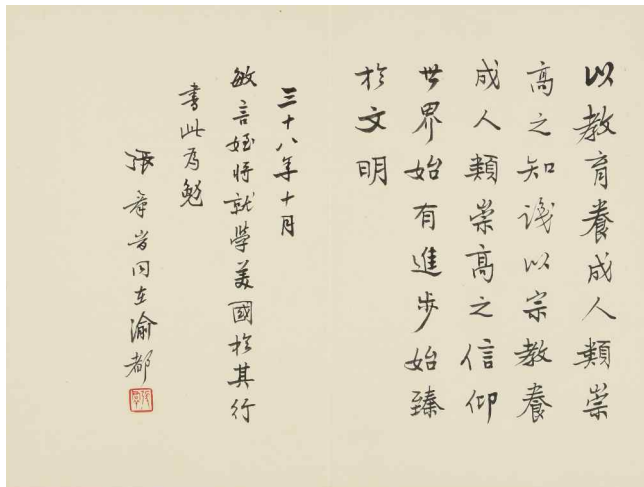 以教育養成人類崇
高之知識以宗教養
成人類崇高之信仰
世界始有進步始臻
於文明
三十八年十月
敏言姪將就學美國於其行
書此為勉
張羣同在渝都